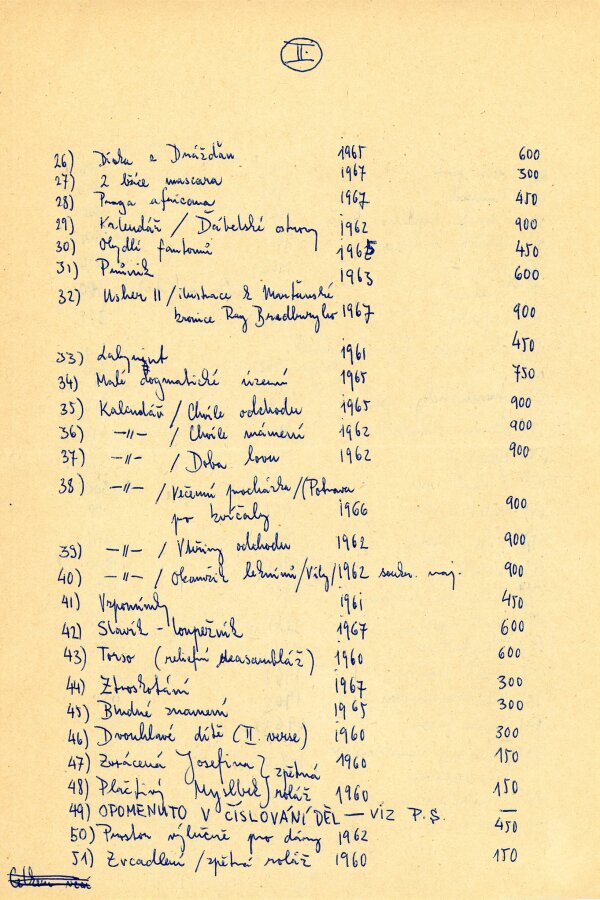 II.
26) Dívka z Drážďan 1965 600
27) 2 lžíce mascara 1967 300
28) Praga africana 1967 450
29) Kalendář / Ďábelské ostrovy 1962 900
30) Obydlí fantomů 1965 450
31) Průnik 1963 600
32) Usher II / ilustrace k Marťanské
kronice Ray Bradburyho 1967 900
33) Labyrint 1961 450
34) Malé dogmatické území 1965 750
35) Kalendář / Chvíle odchodu 1965 900
36) —〃— / Chvíle mámení 1962 900
37) —〃— / Doba lovu 1962 900
38) —〃— / Večerní procházka / (Potrava
po kvíčaly 1966 900
39) —〃— / Vteřiny odchodu 1962 900
40) —〃— / Okamžik leknínů / Víly / 1962 soukr. maj. 900
41) Vzpomínky 1961 450
42) Slavík - loupežník 1967 600
43) Torso (reliefní deasambláž) 1960 600
44) Ztroskotání 1967 300
45) Bludné znamení 1965 300
46) Dvouhlavé dítě (II. verse) 1960 300
47) Zvrácená Josefina } zpětná 1960 150
48) Plačtivý Myslbek } roláž 1960 150
49) OPOMENUTO V ČÍSLOVÁNÍ DĚL — VÍZ P.S. —
50) Prostor výlučně pro dámy 1962 450
51) Zrcadlení / zpětná roláž 1960 150